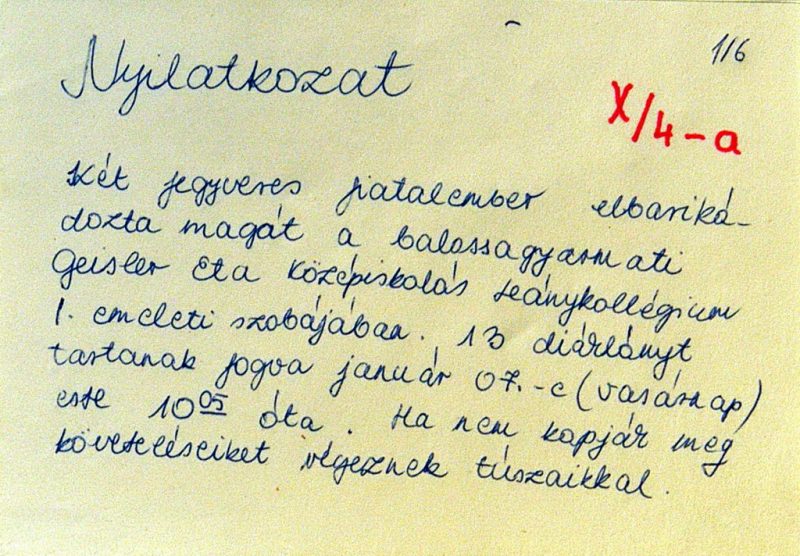 1/6
Nyilatkozat
X/4-a
Két fegyveres fiatalember elbariká-
dozta magát a balassagyarmati
Geisler Eta középiskolás leánykollégium
I. emeleti szobájában. 13 diáklányt
tartanak fogva január 07.-e (vasárnap)
este 10⁰⁵ óta. Ha nem kapják meg
követeléseiket végeznek túszaikkal.